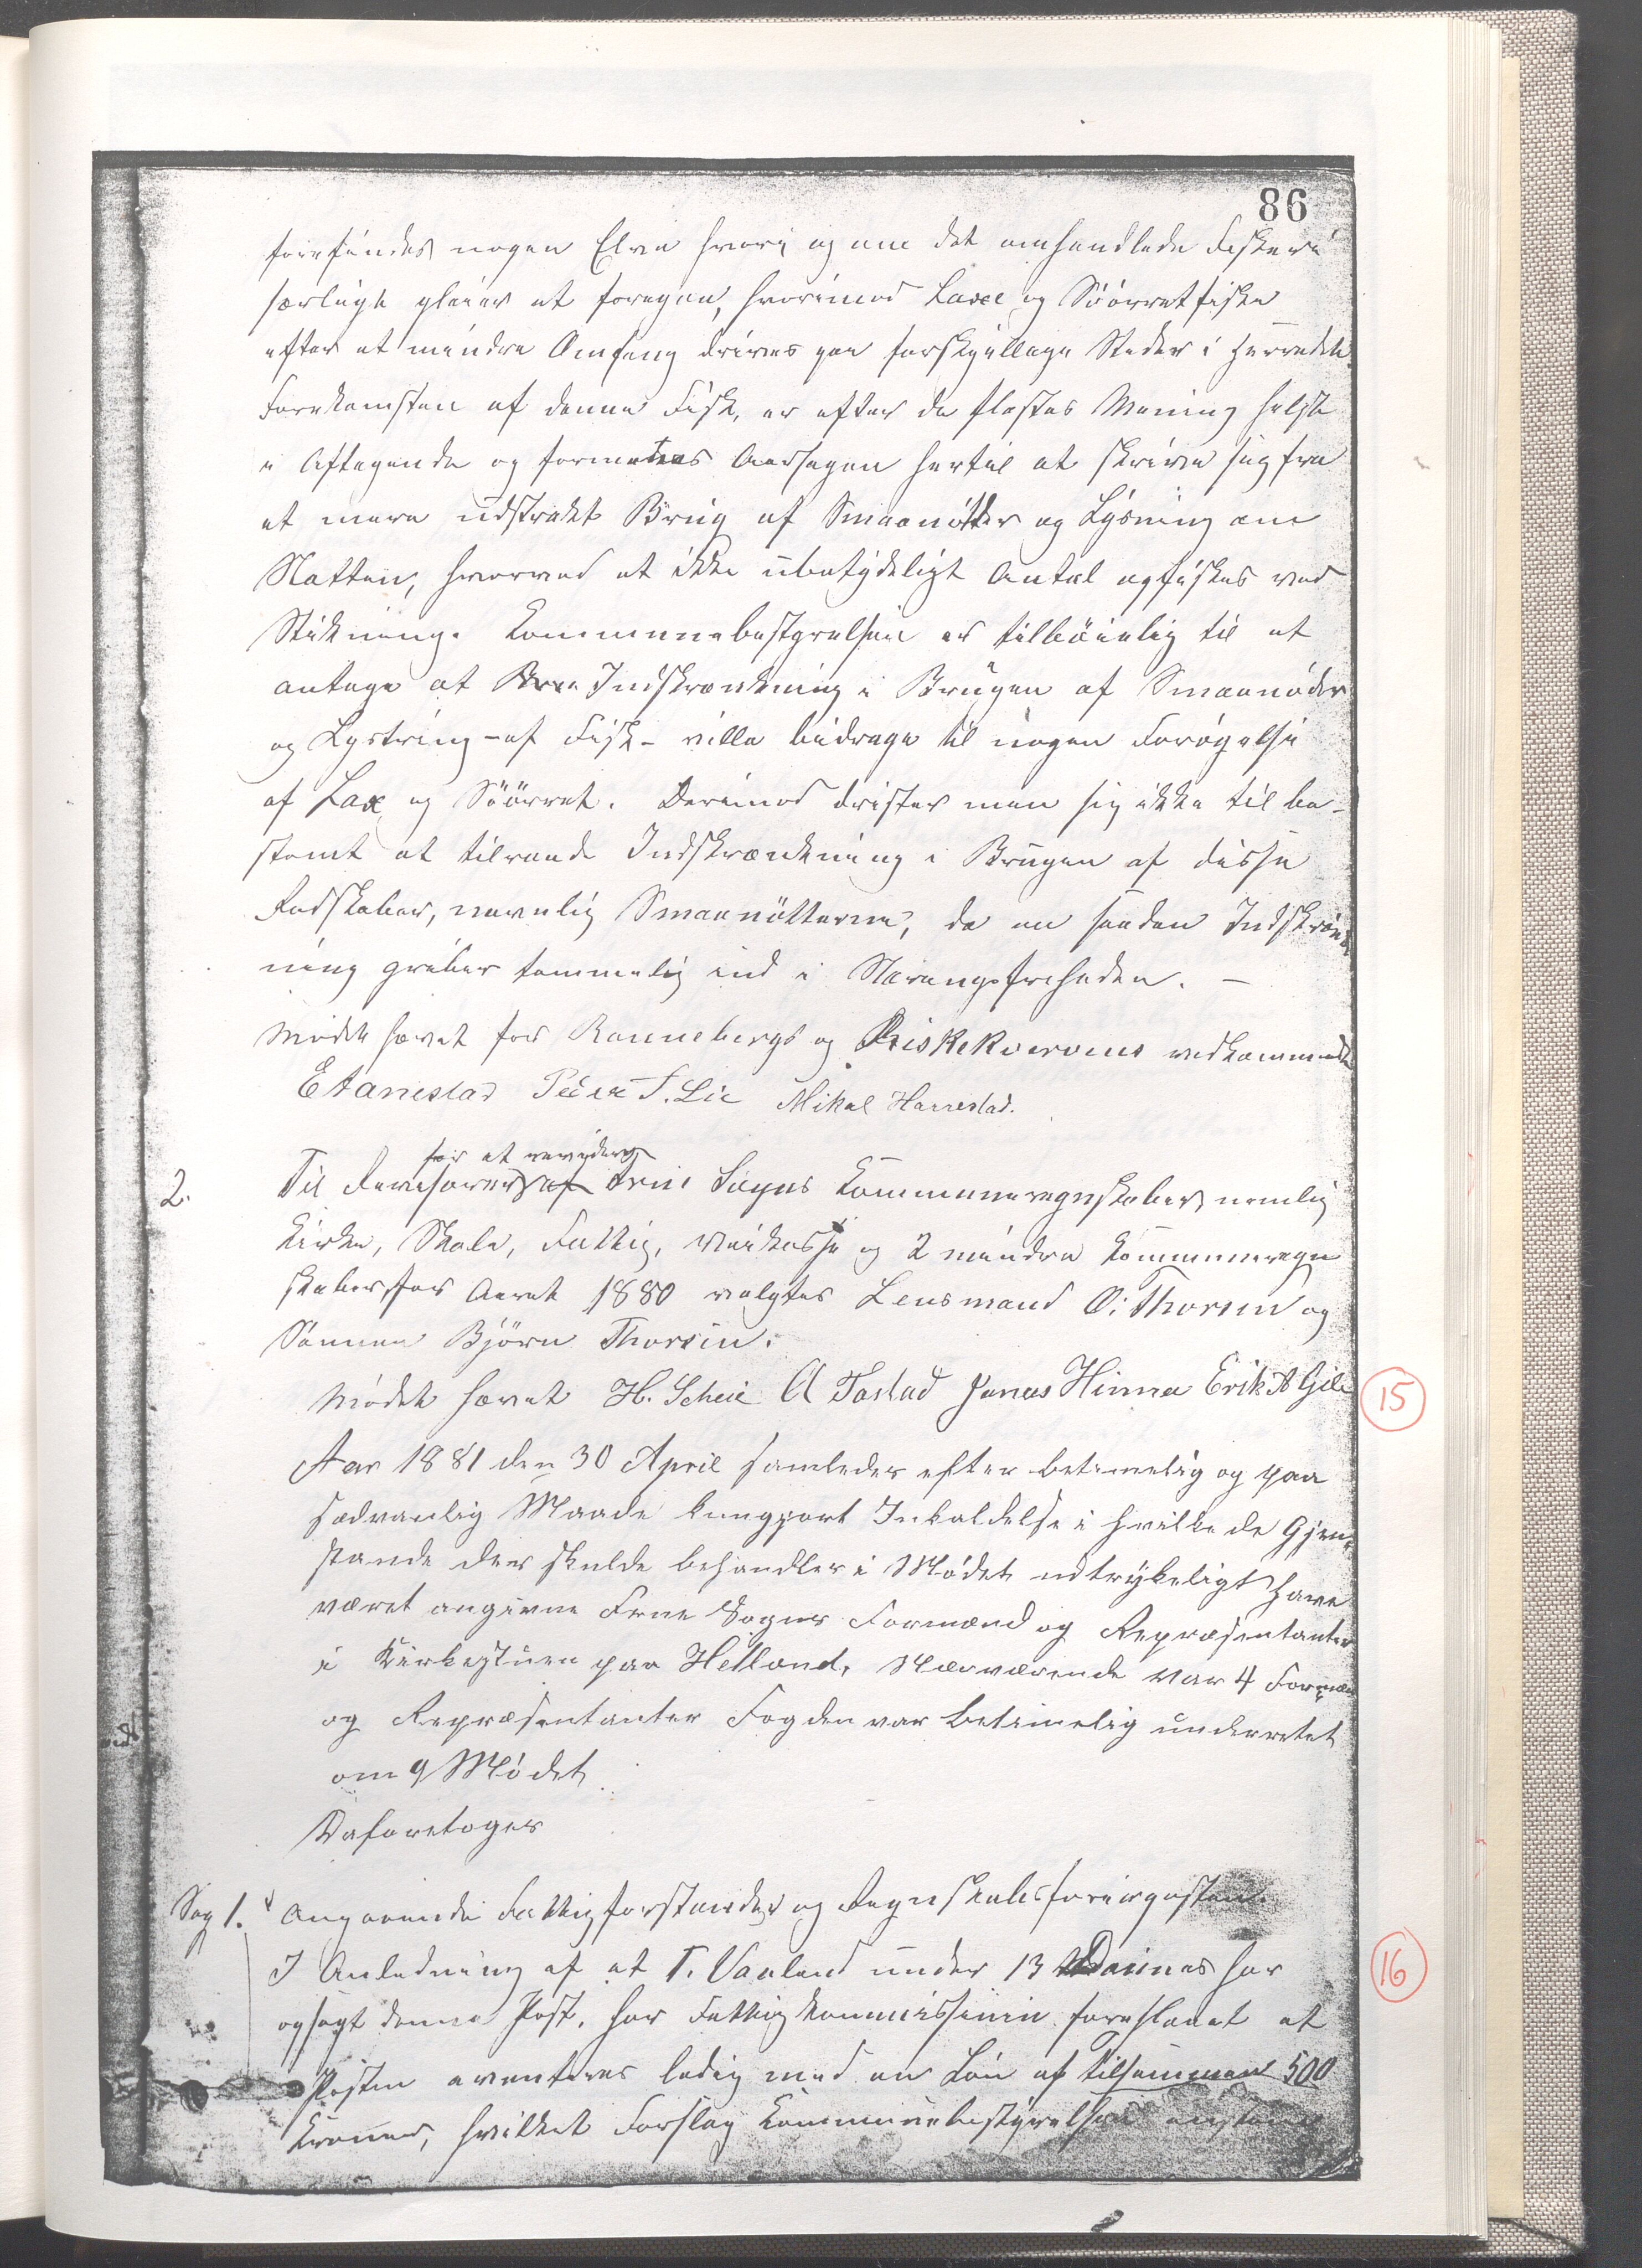 86
forefindes nogen Elve hvori og om det omhandlede Fiskeri
særligt pleier at foregaa, hvorimod Laxe og Söörretfiske
efter et mindre Omfang drives paa forskjellige Steder i Herredet.
Forekomsten af denne Fisk, er efter de flestes Mening helst
i Aftagende og formenes Aarsagen hertil at skrive sig fra
et mere udstrakt Brug af Smaanötter og Lysning om
Natten, hvorved et ikke ubetydeligt Antal opfiskes ved
Stikning. Kommunebestyrelsen er tilböielig til at
antage at Indskrænkning i Brugen af Smaanöder
og Lystring - af Fisk - ville bidrage til nogen Forögelse
af Lax og Söörret. Derimod drister man sig ikke til be-
stemt at tilraade Indskrænkning i Brugen af disse
Redskaber, navnlig Smaanötterne, da en saadan Indskrænk
ning griber temmelig ind i Næringsfriheden. —
Mödet hævet for Rannebergs og vedkommende
E Harrestad Peder T. Lie Mikal Harrestad.
for at revidere
2. Til Revisorer af Frue Sogns Kommuneregnskaber, nemlig
Kirke, Skole, Fattig, Veikasse og 2 mindre Kommuneregn
skaber for Aaret 1880 valgtes Lensmand O. Thorsen og
Sönnen Björn Thorsen.
Mödet hævet H. Scheie A Tastad Jonas Hinna Erik A Gile
15
Aar 1881 den 30 April samledes efter betimelig og paa
sædvanlig Maade kungjort Inkaldelse i hvilke de Gjen-
stande der skulde behandles i Mødet udtrykeligt have
været angivne Frue Sogns Formænd og Repræsentanter
i Kirkestuen paa Hetland, Nærværende var 4 Formænd
og Repræsentanter Fogden var betimelig underrettet
om Mødet
Da foretoges
Sag 1. Angaaende Fattigforstander og Regnskabsförerposten.
16
I Anledning af at T. Vaaland under 13 har
opsagt denne Post, har Fattigkommissionen foreslaaet at
Posten averteres ledig med en Lön af tilsammen 500
Kroner, hvilket Forslag Kommunebestyrelsen